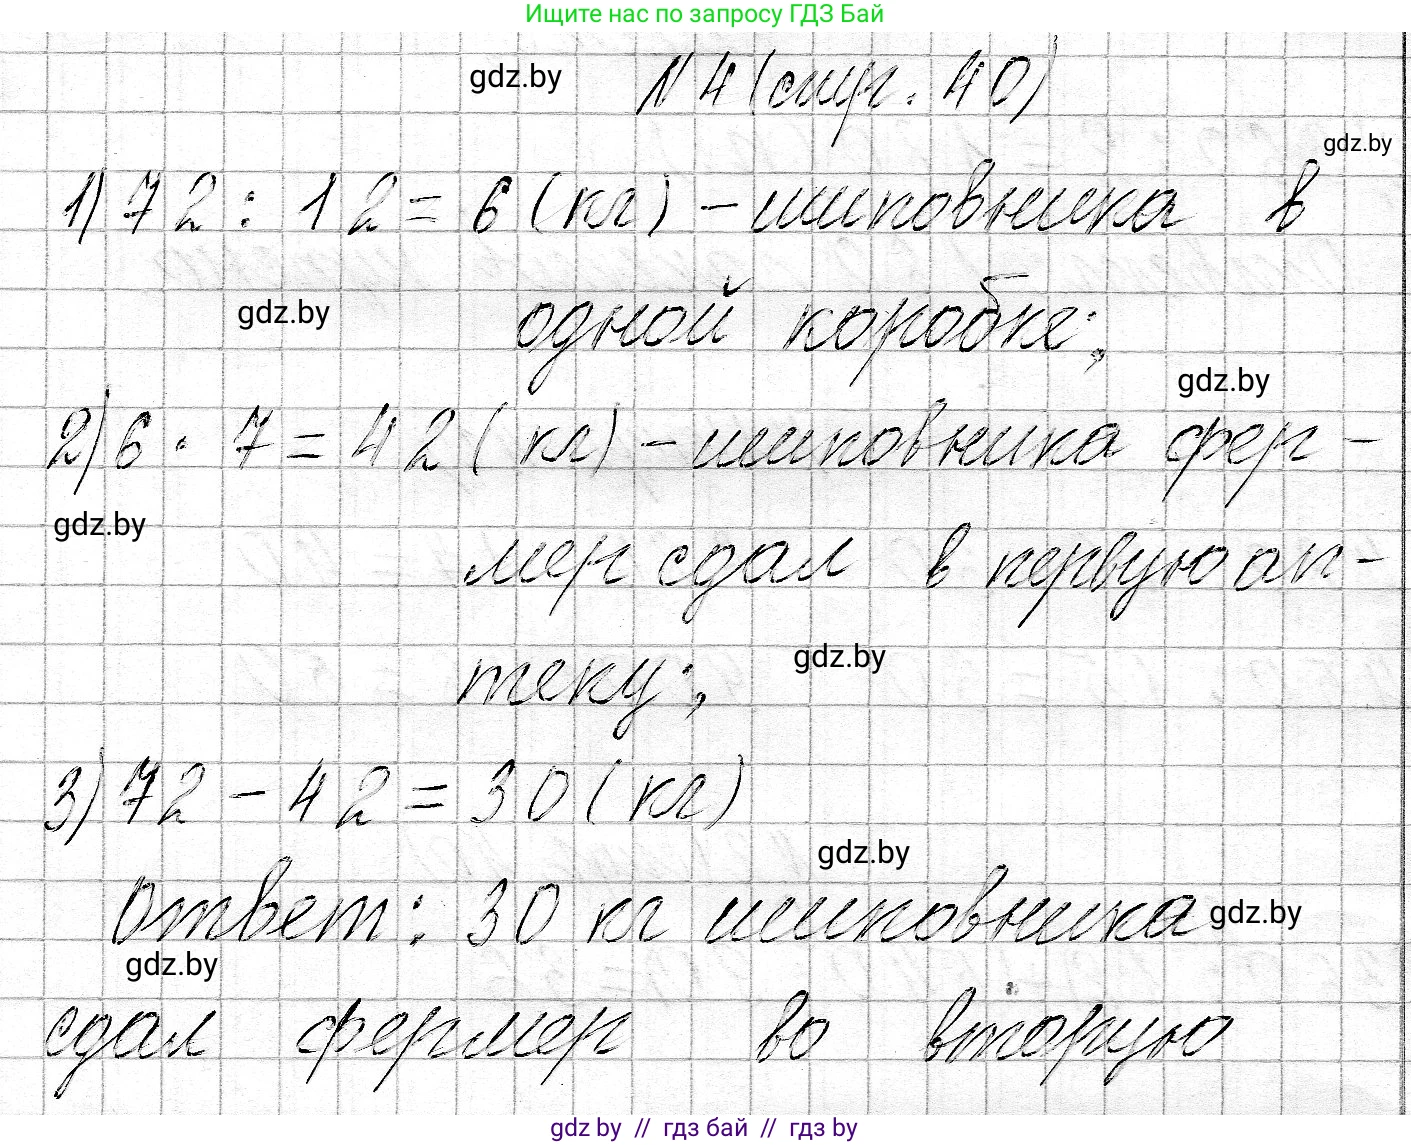 Ищите нас по запросу ГДЗ Бай
gdz.by
N 4 (стр. 40)
gdz.by
1) 72 : 12 = 6 (кг) – шиповника в
gdz.by
одной коробке;
gdz.by
2) 6 · 7 = 42 (кг) – шиповника фер-
gdz.by
мер сдал в первую ап-
теку;
gdz.by
3) 72 – 42 = 30 (кг)
gdz.by
Ответ: 30 кг шиповника
gdz.by
gdz.by
сдал фермер во вторую
gdz.by // гдз бай // гдз by